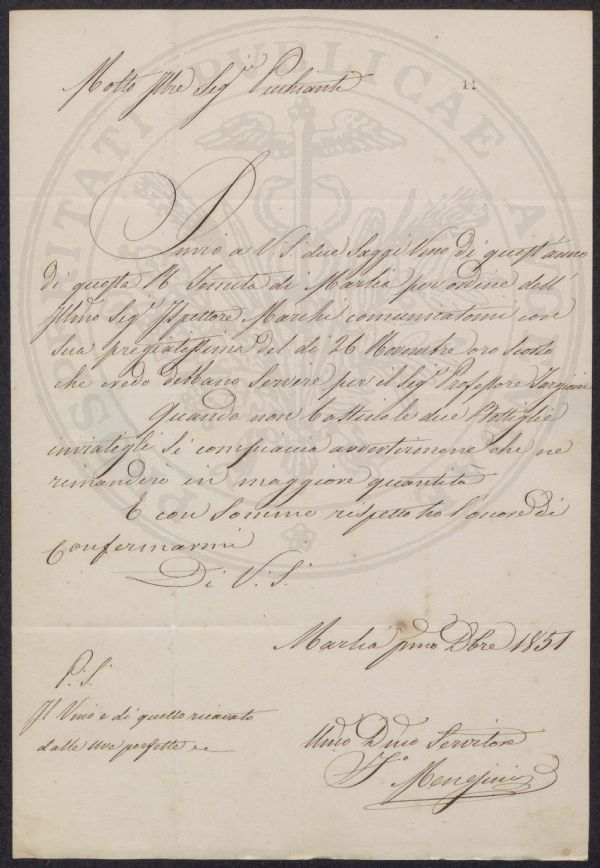 11
Molto Illre Sigre Picchianti
Invio a V. S. due Saggi Vino di quest'anno
di questa R. Tenuta di Marlia per ordine dell'
Illmo Sigr Ispettore Marchi comunicatomi con
sua pregiatissima del dì 26 Novembre oro Scorso
che credo debbano servire per il Sigr Professore Targioni
Quando non bastino le due Bottiglie
inviategli si compiaccia avvertirmene che ne
rimanderò in maggiore quantità
E con Sommo rispetto ho l'onore di
Confermarmi
Di V. S.
Marlia pmo Dbre 1851
P. S.
Il Vino è di quello ricavato
dalle Uve perfette
Umo Dmo Servitore
Mengini
PROSPERITATI PUBLICAE AUGENDAE